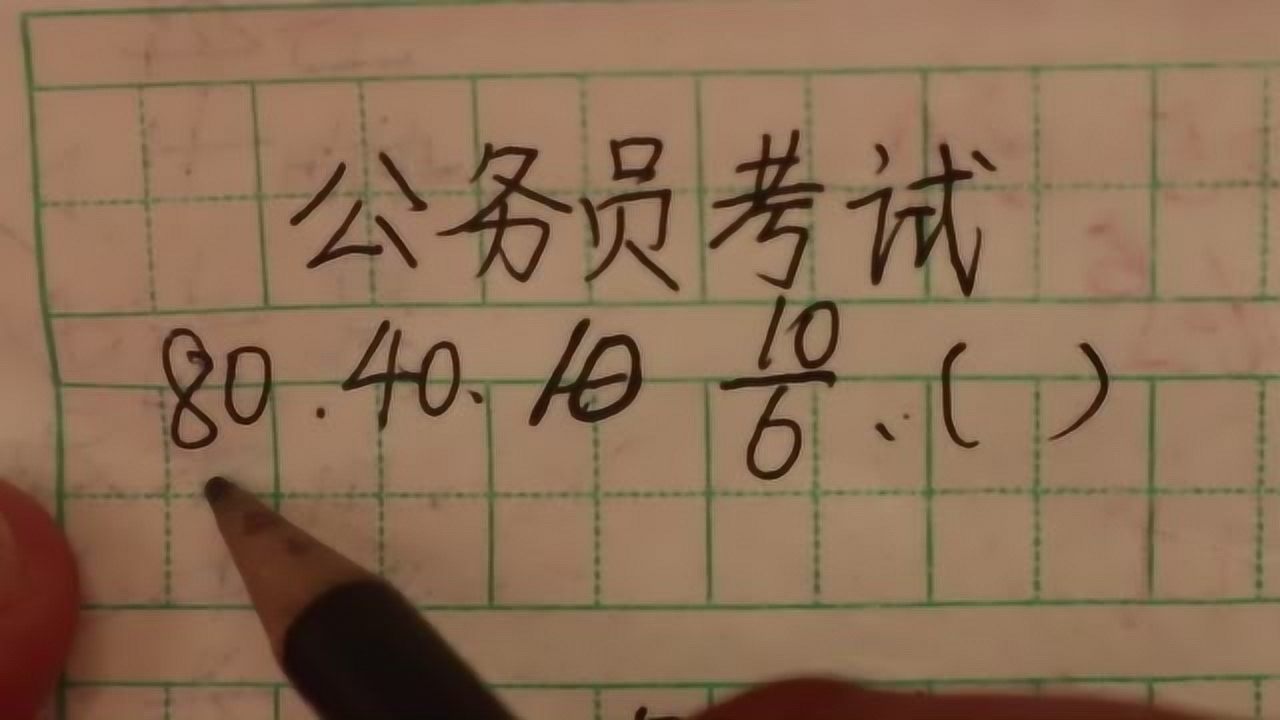 公务员考试
80.40、10 10/6、( )